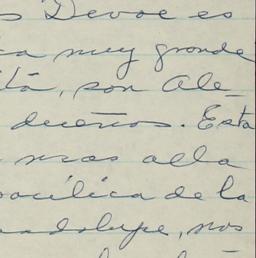 s Devoe es
ca muy grande
tá, son Ale-
dueños. Esta
mas alla
pacifica de la
uadalupe, nos